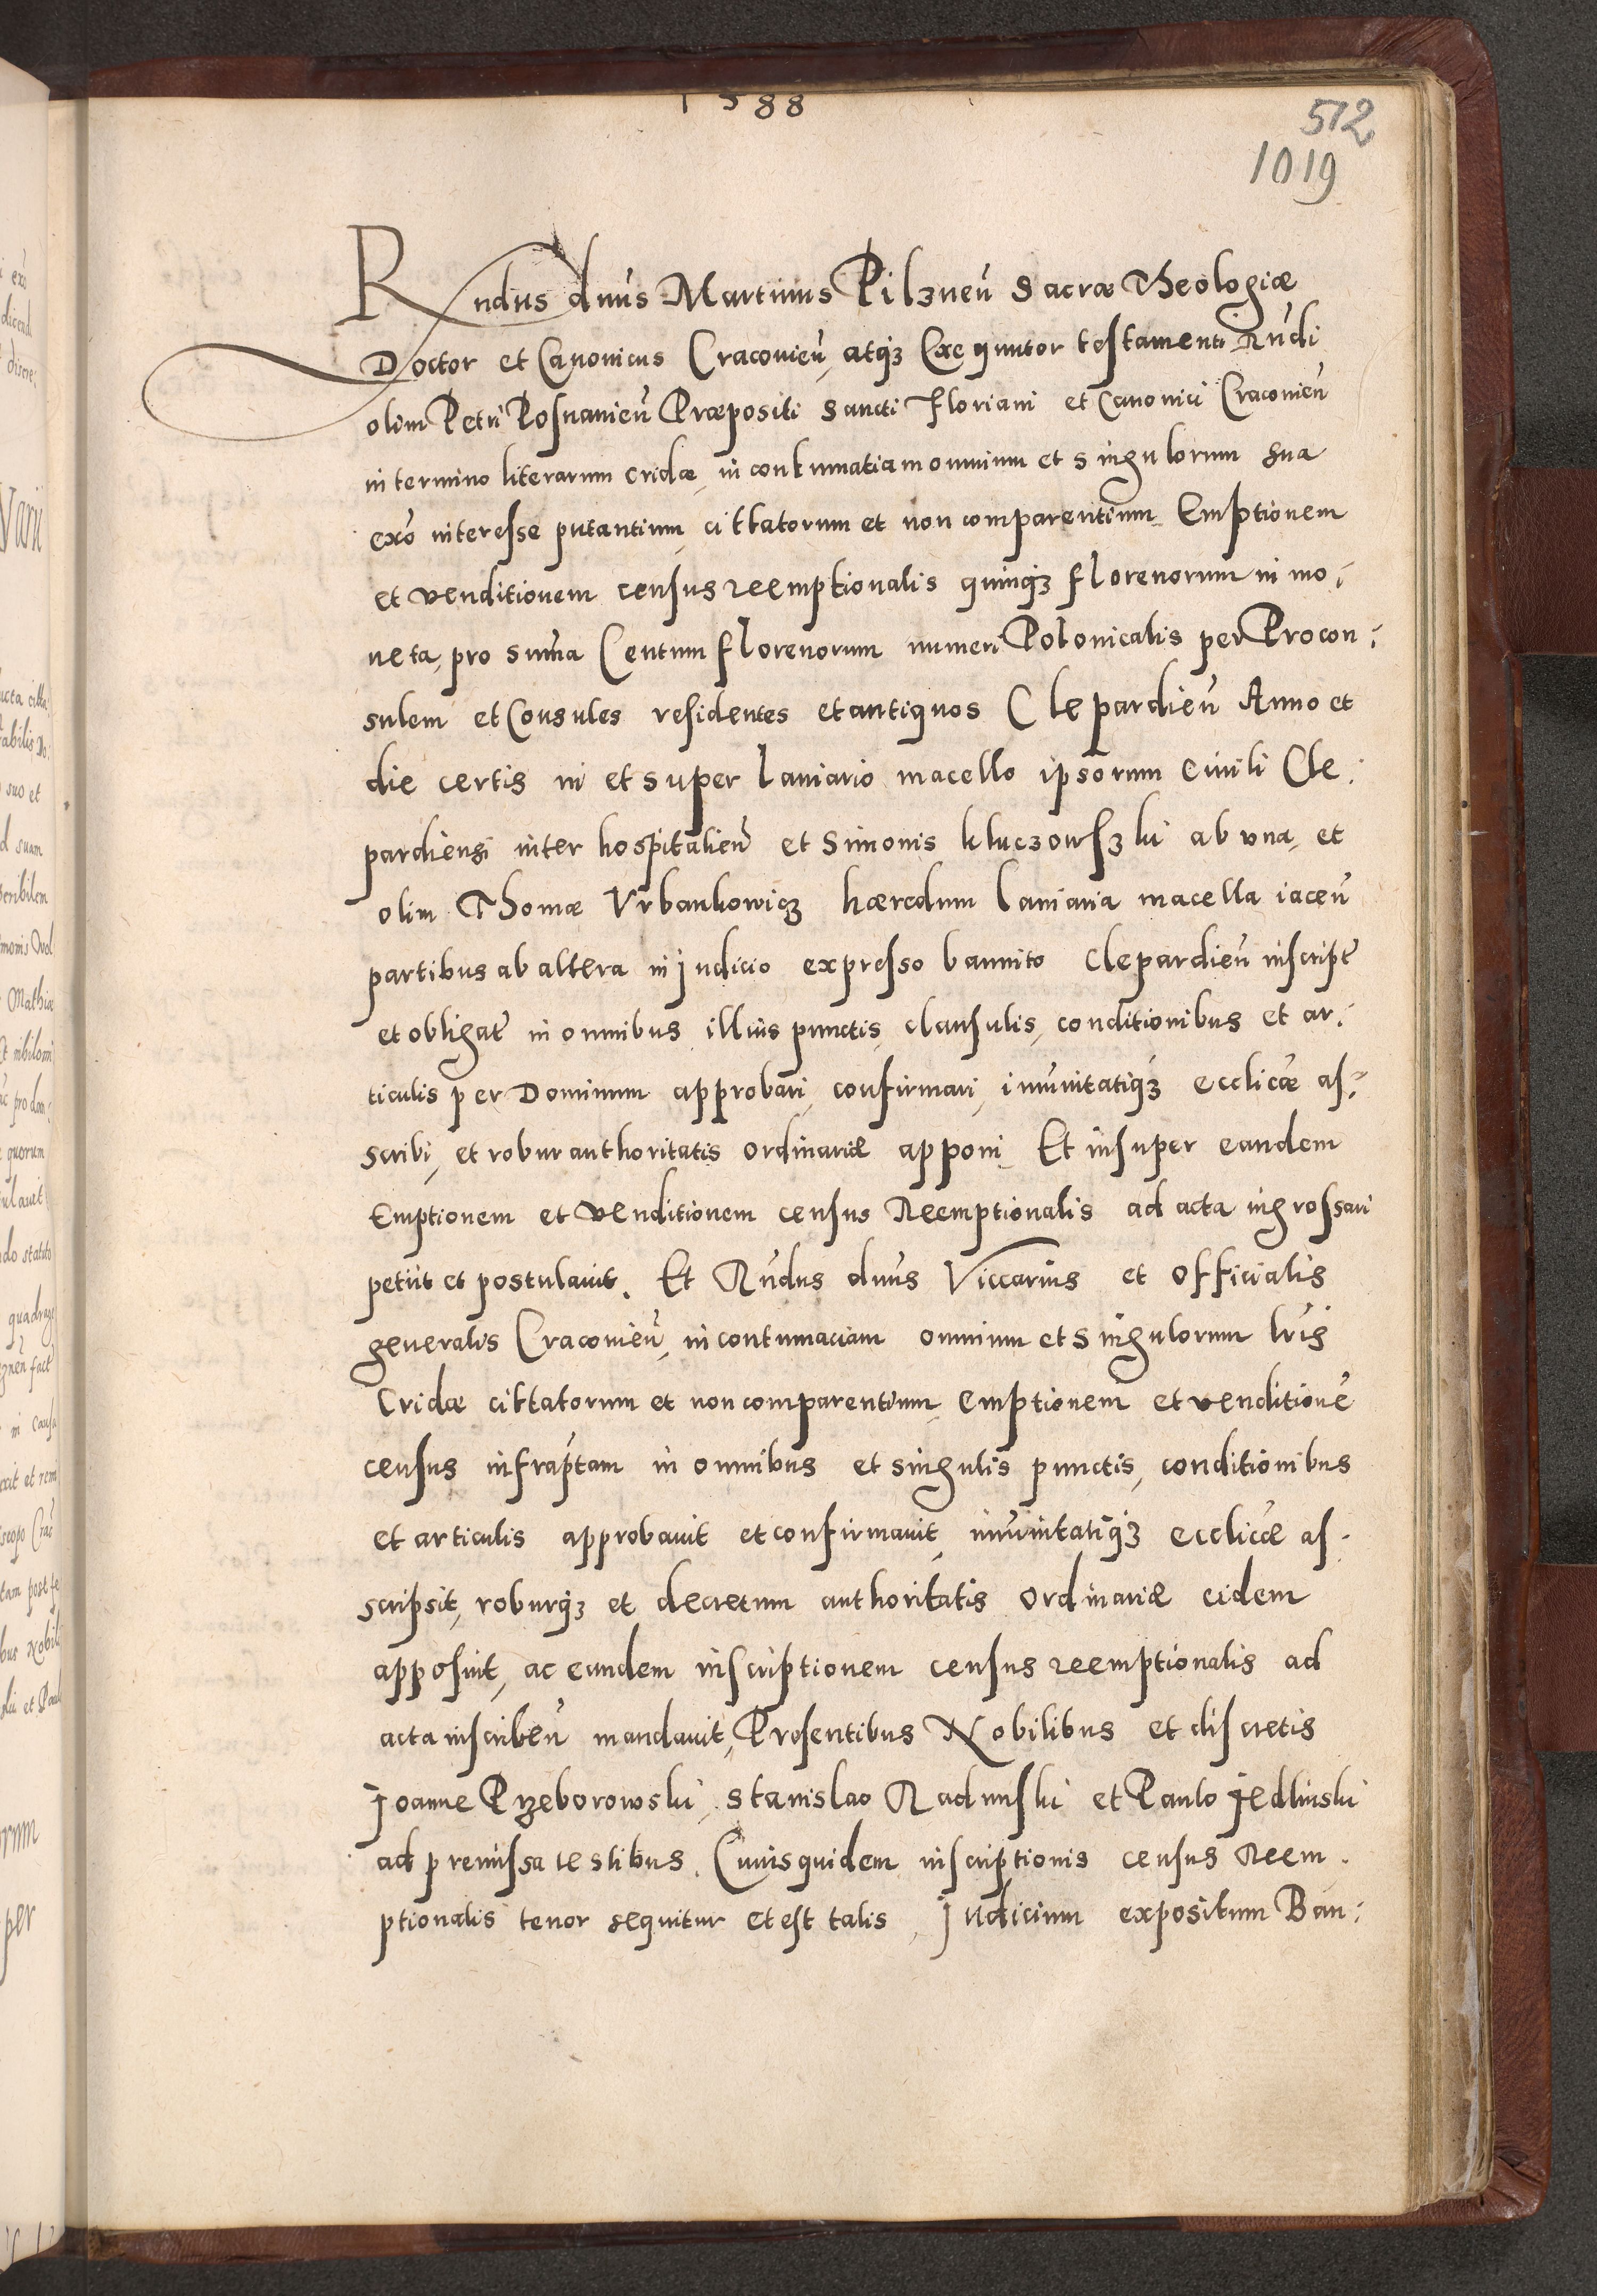 1588
512
1019
Rndus dnus Martinus Pilznen̄ Sacræ Theologiæ
Doctor et Canonicus Cracovien̄, atqz Exequutor testamenti Rn̄di
olim Petri Posnanien̄ Præpositi Sancti Floriani et Canonici Cracovien̄
in termino literarum cridæ, in contumatiam omnium et singulorum sua
exō interesse putantium, cittatorum et non comparentium Emptionem
et venditionem census reemptionalis quinqz florenorum in mo-
neta, pro sum̄a Centum florenorum numeri Polonicalis per Procon-
sulem et Consules residentes et antiquos Clepardien̄ Anno et
die certis in et super laniario macello ipsorum civili Cle-
pardiensi inter hospitalien̄ et Simonis Kluczowszki ab una, et
olim Thomæ Urbankowicz hæredum laniaria macella iacen̄
partibus ab altera in Judicio expresso bannito Clepardien̄ inscript̄
et obligat̄ in omnibus illius punctis, clausulis, conditionibus et ar-
ticulis per Dominum approbari, confirmari, im̄unitatiqz eccl̄icæ as-
scribi, et robur authoritatis ordinariæ apponi Et insuper eandem
Emptionem et venditionem census Reemptionalis ad acta ingrossari
petiit et postulavit. Et Rn̄dus dnus Viccarius et Officialis
generalis Cracovien̄, in contumaciam omnium et singulorum lr̄is
Cridæ cittatorum et non comparentium, Emptionem et venditionē
census infrap̄tam in omnibus et singulis punctis, conditionibus
et articulis approbavit et confirmavit, im̄unitatiqz eccl̄icæ as-
scripsit, roburqz et decretum authoritatis ordinariæ eidem
apposuit, ac eandem inscriptionem census reemptionalis ad
acta inscriben̄ mandavit, Presentibus Nobilibus et discretis
Joanne Przeborowski, Stanislao Radunski et Paulo Jedlinski
ad premissa testibus. Cuiusquidem inscriptionis census Reem-
ptionalis tenor sequitur et est talis, Judicium expositum Ban-